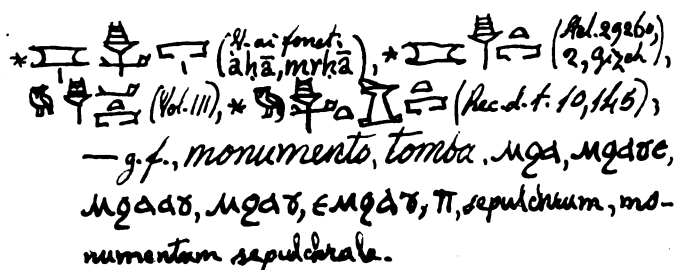 * (V. ai fonet. àḥā, mrḥā), * (Stel. 29260, 2, Gizeh),
(Vol. III), * (Rec. d. t. 10, 145);
— g. f., monumento, tomba, ⲙϩⲁ, ⲙϩⲁⲩⲉ,
ⲙϩⲁⲁⲩ, ⲙϩⲁⲩ, ⲉⲙϩⲁⲩ, ⲡ, sepulchrum, mo-
numentum sepulchrale.